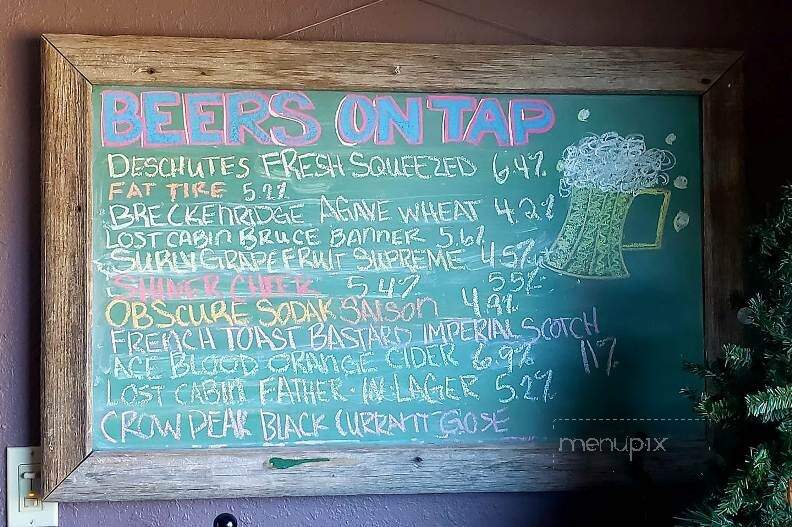 BEERS ON TAP
DESCHUTES FRESH SQUEEZED 6.4%
FAT TIRE 5.2%
BRECKENRIDGE AGAVE WHEAT 4.2%
LOST CABIN BRUCE BANNER 5.6%
SURLY GRAPEFRUIT SUPREME 4.5%
SHINER CHEER 5.4% 5.5%
OBSCURE SODAK SAISON 4.9%
FRENCH TOAST BASTARD IMPERIAL SCOTCH
ACE BLOOD ORANGE CIDER 6.9% 11%
LOST CABIN FATHER-IN-LAGER 5.2%
CROW PEAK BLACK CURRANT GOSE
menupix